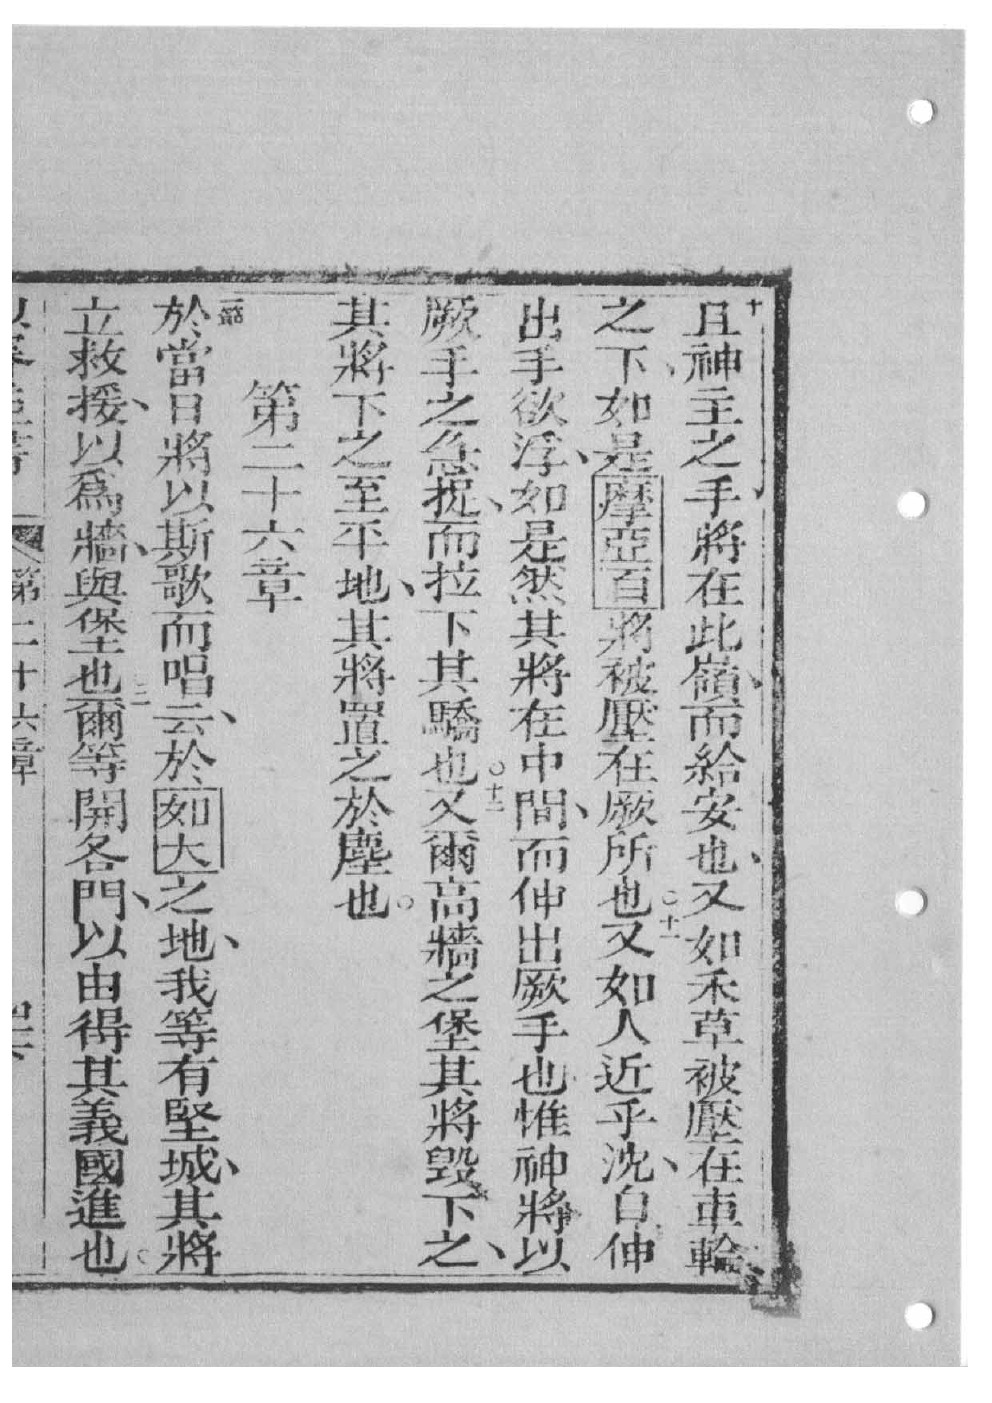 十且神主之手將在此嶺、而給安也、又如禾草被壓在車輪
之下、如是摩亞百將被壓在厥所也○十一又如人近乎沈、自伸
出手欲浮、如是然其將在中間、而伸出厥手也惟神將以
厥手之急捉、而拉下其驕也○十二又爾高牆之堡其將毀下之、
其將下之至平地、其將置之於塵也○
第二十六章
一節於當日將以斯歌而唱云、於如大之地、我等有堅城、其將
立救援、以爲牆、與堡也二爾等開各門、以由得其義國進也○
第二十六章